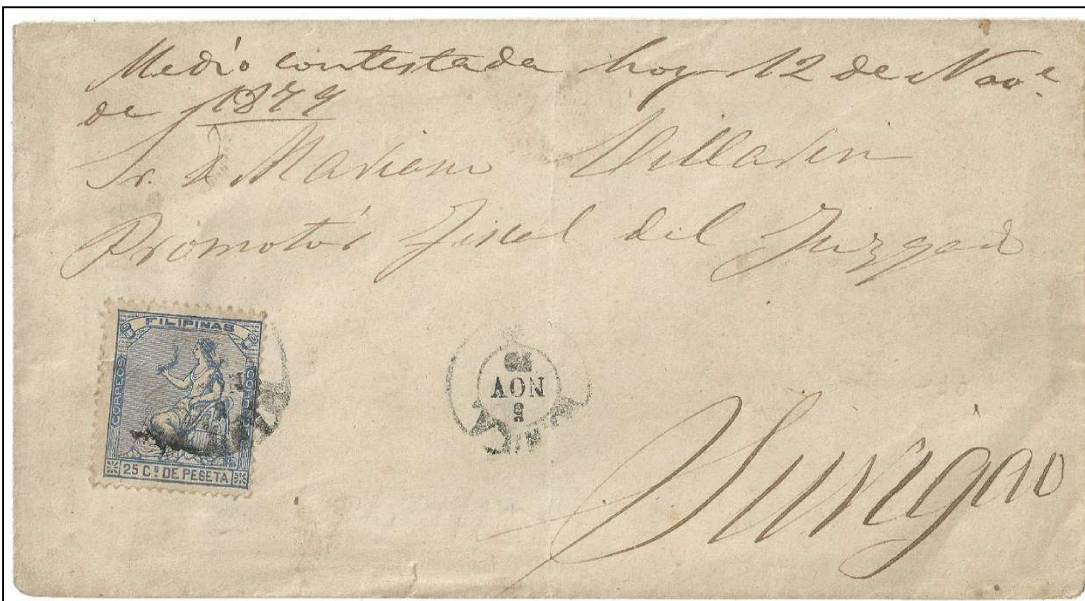 Medio contestada hoy 12 de Nov.e
de 1879
Sr. D. Mariano
Promotor Fiscal del Juzgado
FILIPINAS
CORREOS
25 C.s DE PESETA
NOV
5
Surigao